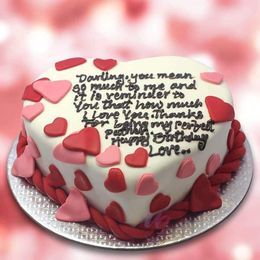 Darling, you mean
so much to me and
it is reminder to
you that how much
I love you. Thanks
for being my perfect
Partner.
Happy Birthday
Love...